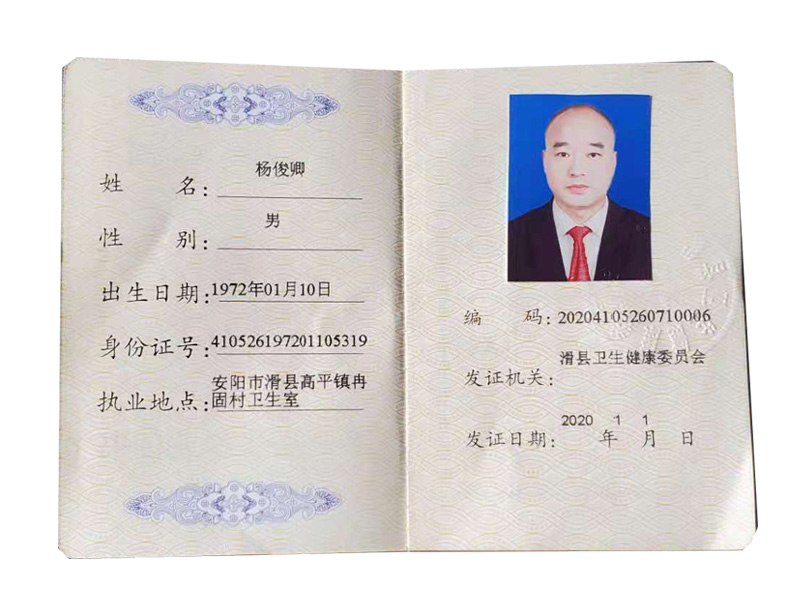 姓 名： 杨俊卿
性 别： 男
出生日期：1972年01月10日
身份证号：410526197201105319
执业地点：安阳市滑县高平镇冉
固村卫生室
编 码：20204105260710006
发证机关：滑县卫生健康委员会
发证日期：2020年1月1日